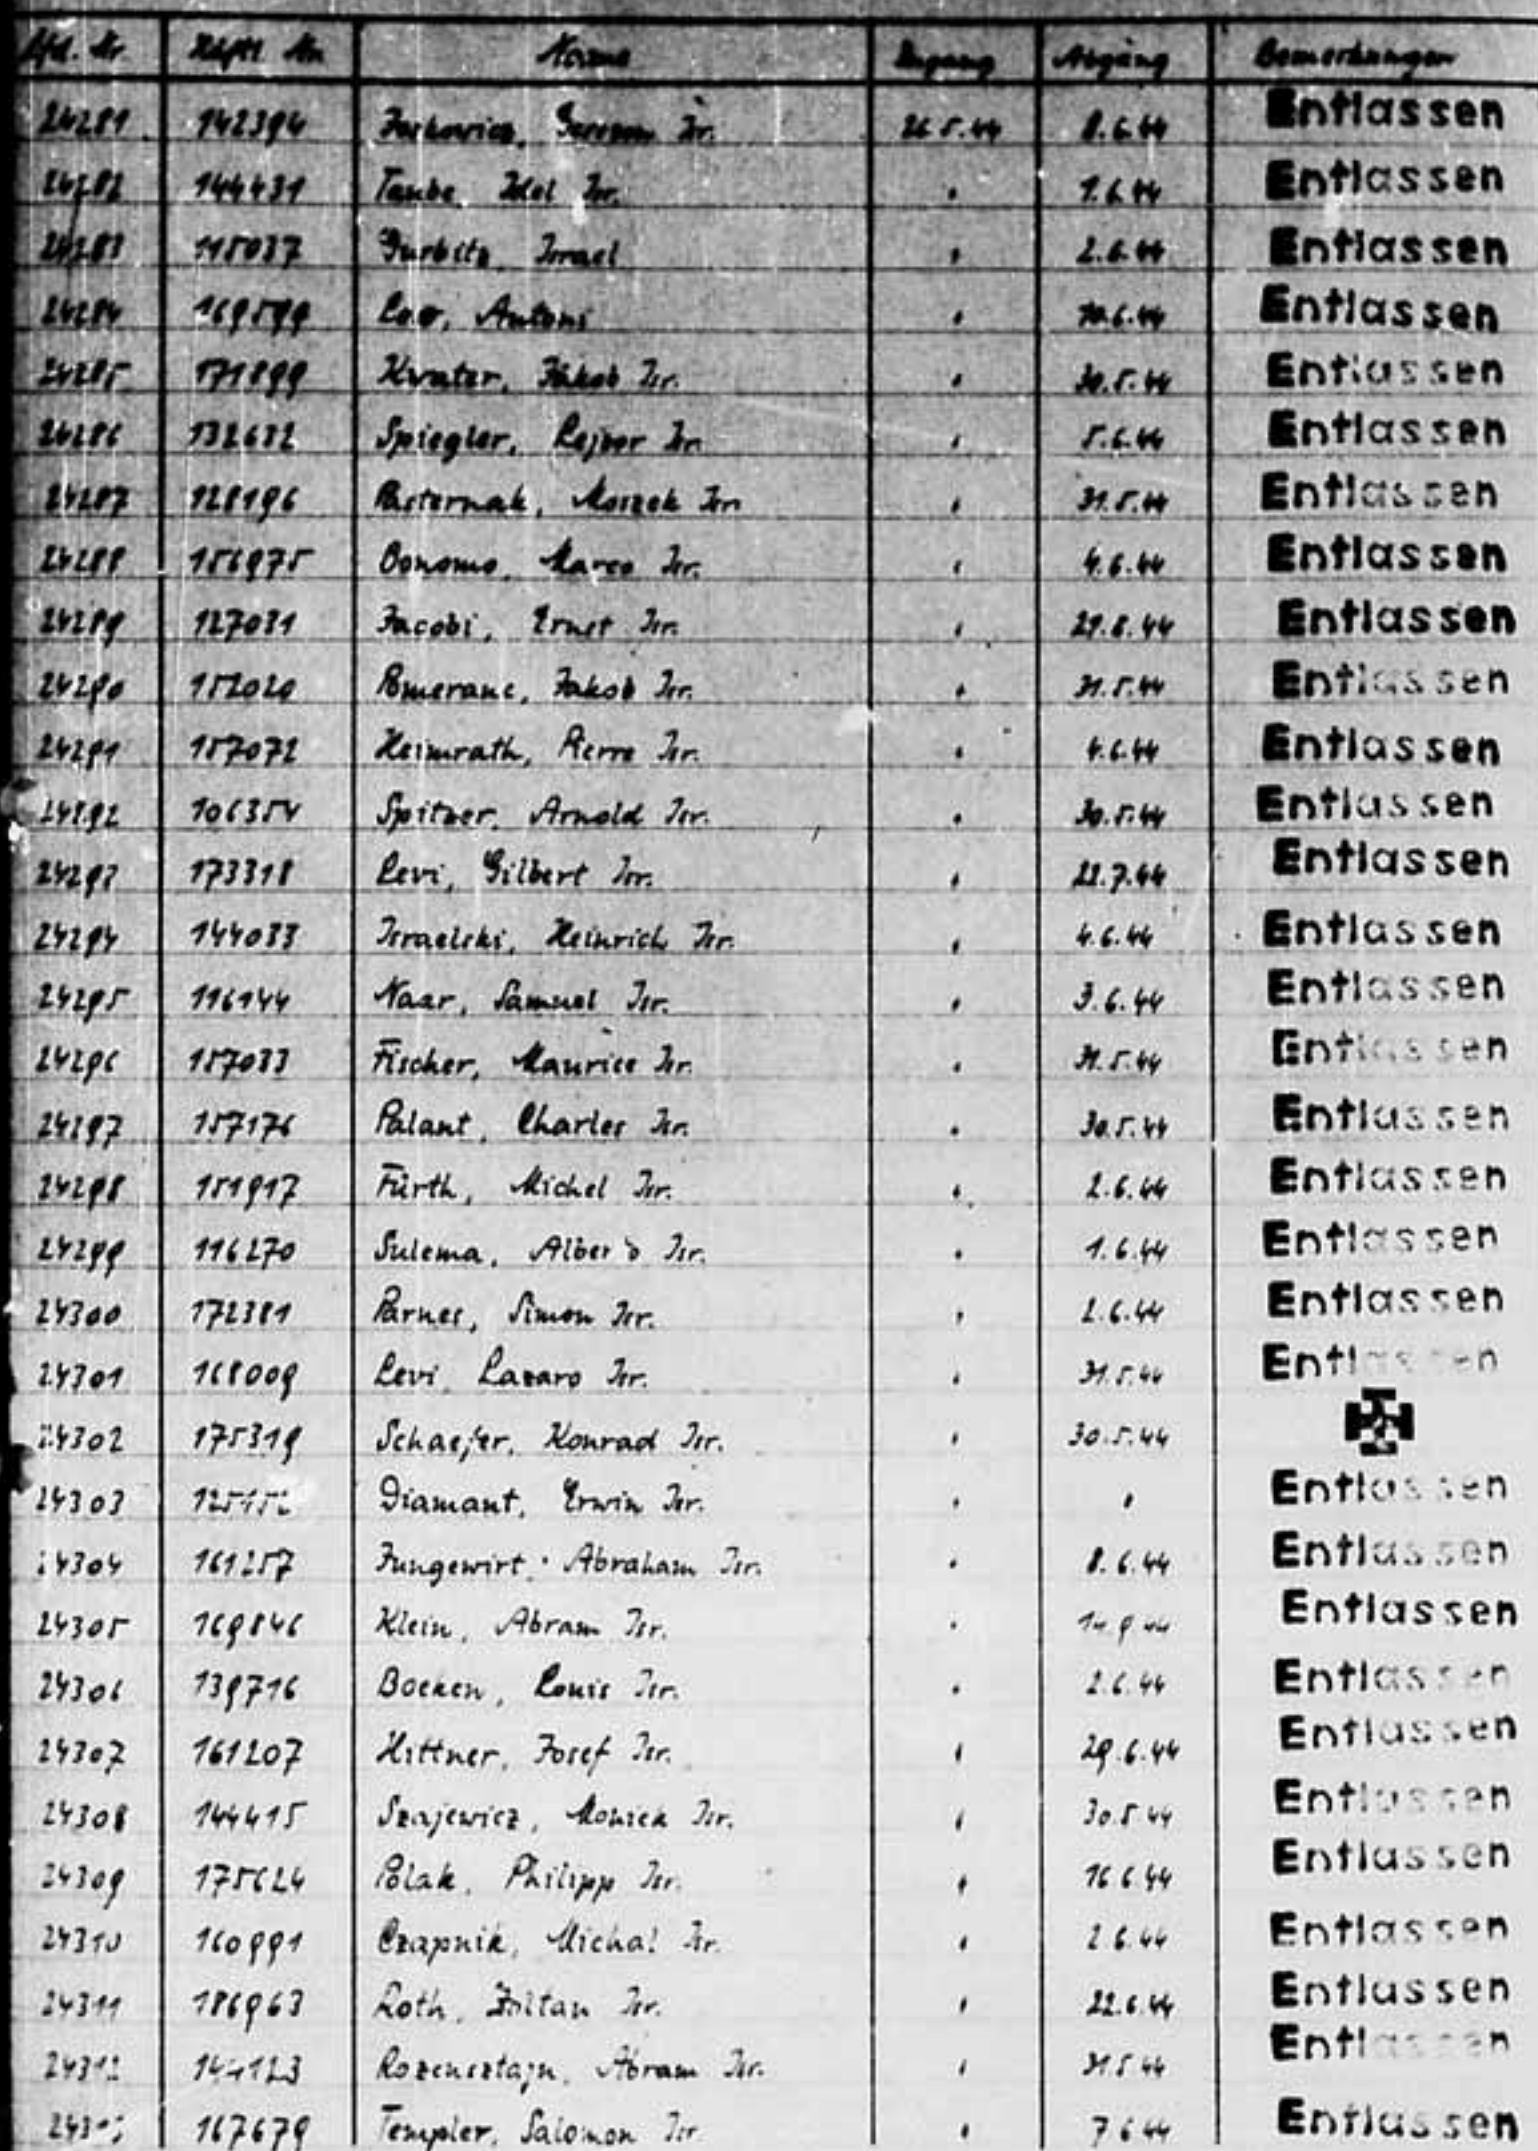 Lfd. Nr. Häftl. Nr. Name Zugang Abgang Bemerkungen
24281 142394 Gerson Isr. 26.5.44 8.6.44 Entlassen
24282 144431 Taube, Idel Isr. " 1.6.44 Entlassen
24283 115037 Gurbitz, Israel " 2.6.44 Entlassen
24284 169599 Antoni " 10.6.44 Entlassen
24285 171899 Kwater, Jakob Isr. " 30.5.44 Entlassen
24286 132632 Spiegler, Isr. " 5.6.44 Entlassen
24287 128196 Pasternak, Moszek Isr. " 31.5.44 Entlassen
24288 156975 Bonomo, Marco Isr. " 4.6.44 Entlassen
24289 127031 Jacobi, Ernst Isr. " 29.8.44 Entlassen
24290 152020 Pomeranc, Jakob Isr. " 31.5.44 Entlassen
24291 157072 Heimrath, Pierre Isr. " 4.6.44 Entlassen
24292 106354 Spitzer, Arnold Isr. " 30.5.44 Entlassen
24293 173318 Levi, Gilbert Isr. " 22.7.44 Entlassen
24294 144033 Israelski, Heinrich Isr. " 4.6.44 Entlassen
24295 116144 Naar, Samuel Isr. " 3.6.44 Entlassen
24296 157033 Fischer, Maurice Isr. " 31.5.44 Entlassen
24297 157176 Palant, Charles Isr. " 30.5.44 Entlassen
24298 151917 Fürth, Michel Isr. " 2.6.44 Entlassen
24299 116270 Sulema, Albert Isr. " 1.6.44 Entlassen
24300 172381 Parnes, Simon Isr. " 2.6.44 Entlassen
24301 168009 Levi, Lazaro Isr. " 31.5.44 Entlassen
24302 175319 Schaefer, Konrad Isr. " 30.5.44
24303 Diamant, Erwin Isr. " " Entlassen
24304 161257 Jungewirt, Abraham Isr. " 8.6.44 Entlassen
24305 169846 Klein, Abram Isr. " 14.9.44 Entlassen
24306 139716 Boeken, Louis Isr. " 2.6.44 Entlassen
24307 161207 Hittner, Josef Isr. " 29.6.44 Entlassen
24308 144415 Szajewicz, Moniek Isr. " 30.5.44 Entlassen
24309 175624 Polak, Philipp Isr. " 16.6.44 Entlassen
24310 160991 Czapnik, Michal Isr. " 2.6.44 Entlassen
24311 186963 Roth, Zoltan Isr. " 22.6.44 Entlassen
24312 144123 Rozensztajn, Abram Isr. " 31.5.44 Entlassen
24313 167679 Templer, Salomon Isr. " 7.6.44 Entlassen